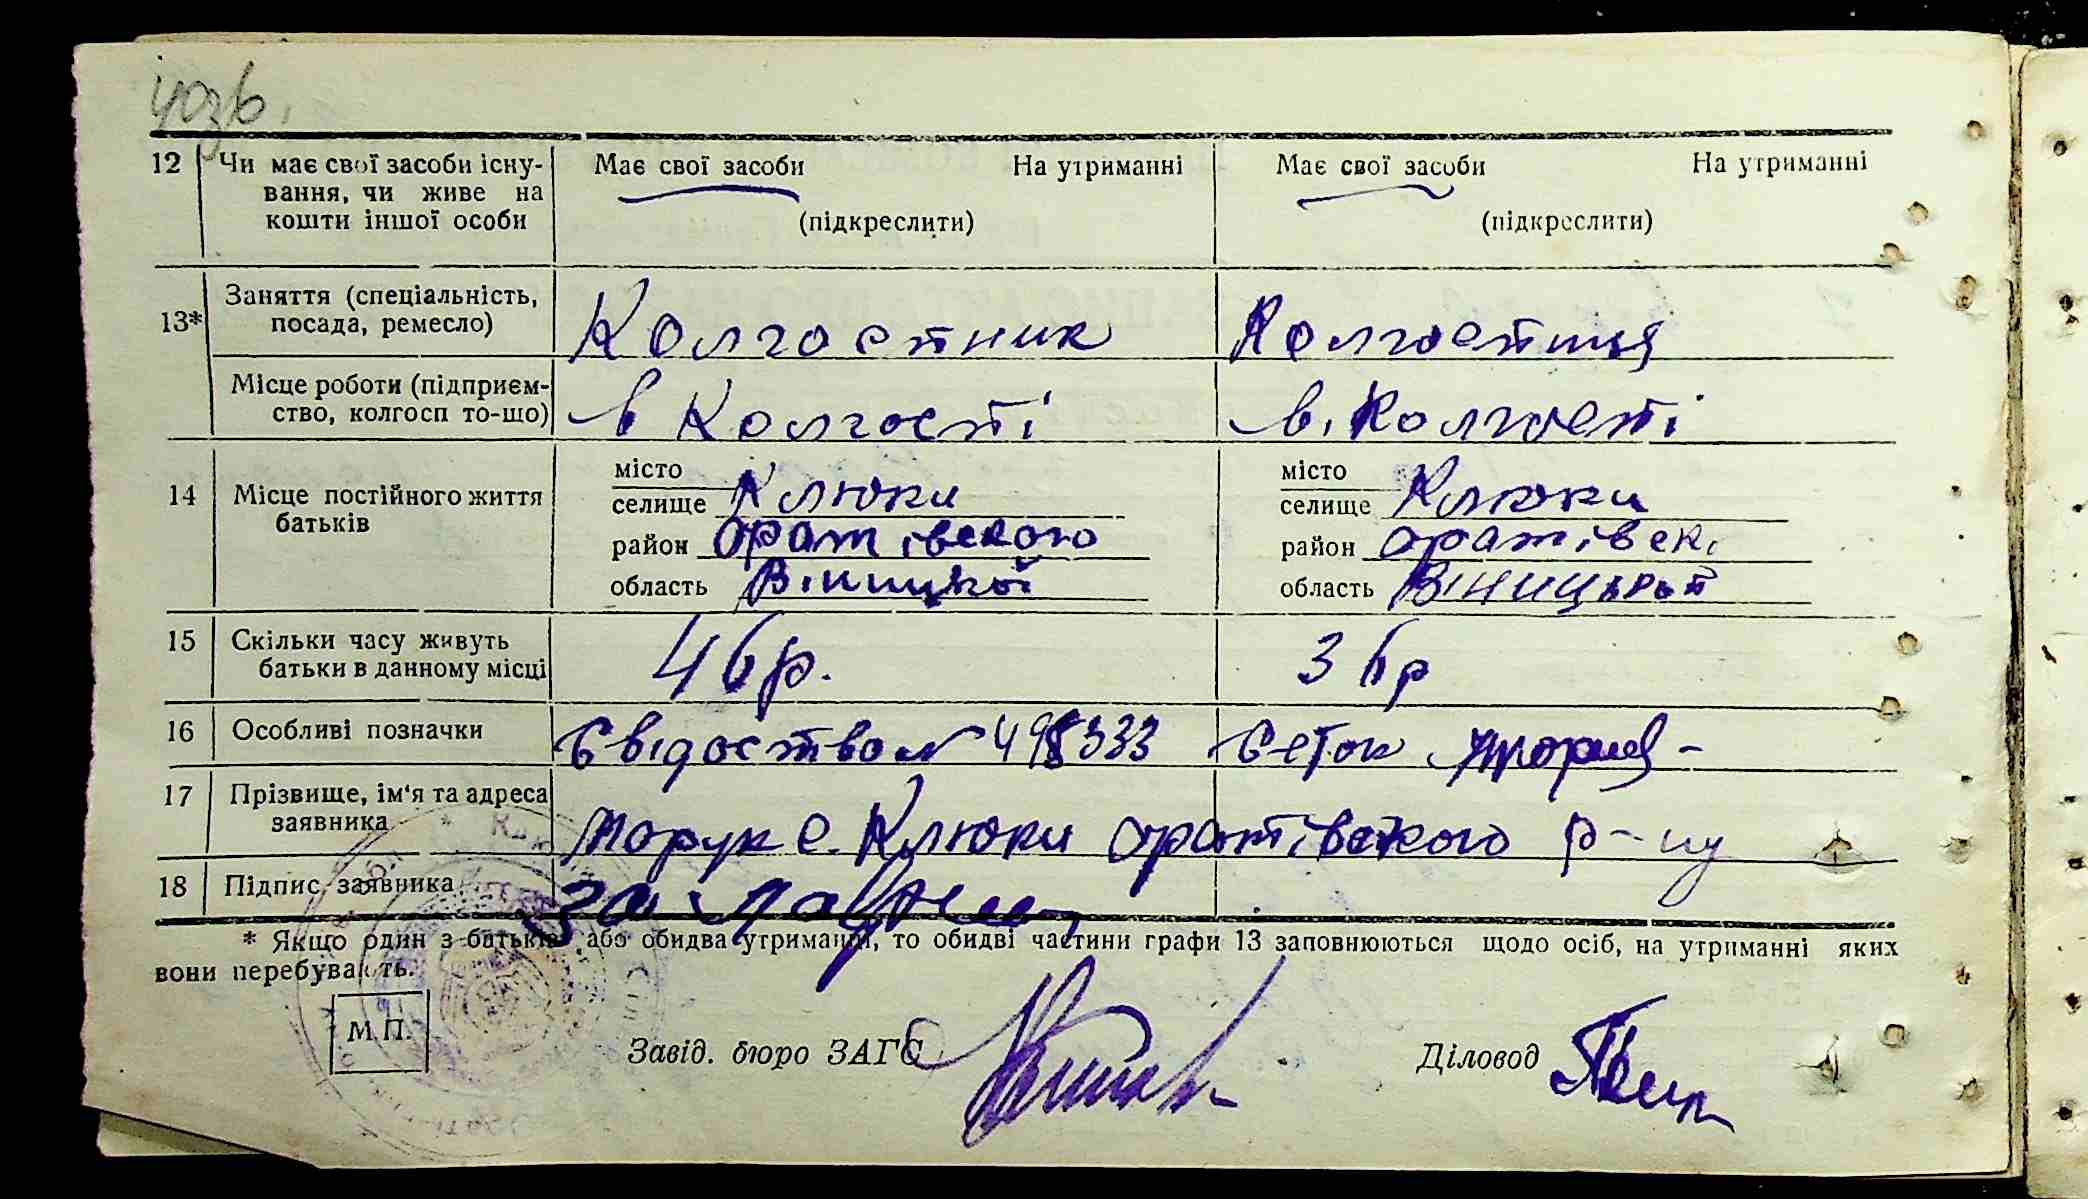 12 Чи має свої засоби існу- Має свої засоби На утриманні Має свої засоби На утриманні
вання, чи живе на
кошти іншої особи (підкреслити) (підкреслити)
13* Заняття (спеціальність,
посада, ремесло) Колгостник Колгостниця
Місце роботи (підприєм-
ство, колгосп то-що) в Колгості в. Колгості
14 Місце постійного життя
батьків
місто місто
селище Клюки селище Клюки
район оратівского район оратівск.
область Вініцкої область Вініцької
15 Скільки часу живуть
батьки в данному місці 46р. 36р
16 Особливі позначки Свідоство №
17 Прізвище, ім'я та адреса
заявника Морук с. Клюки оратівского р-ну
18 Підпис заявника за
* Якщо один з батьків або обидва утриманці, то обидві частини графи 13 заповнюються щодо осіб, на утриманні яких
вони перебувають.
М.П.
Завід. бюро ЗАГС Діловод